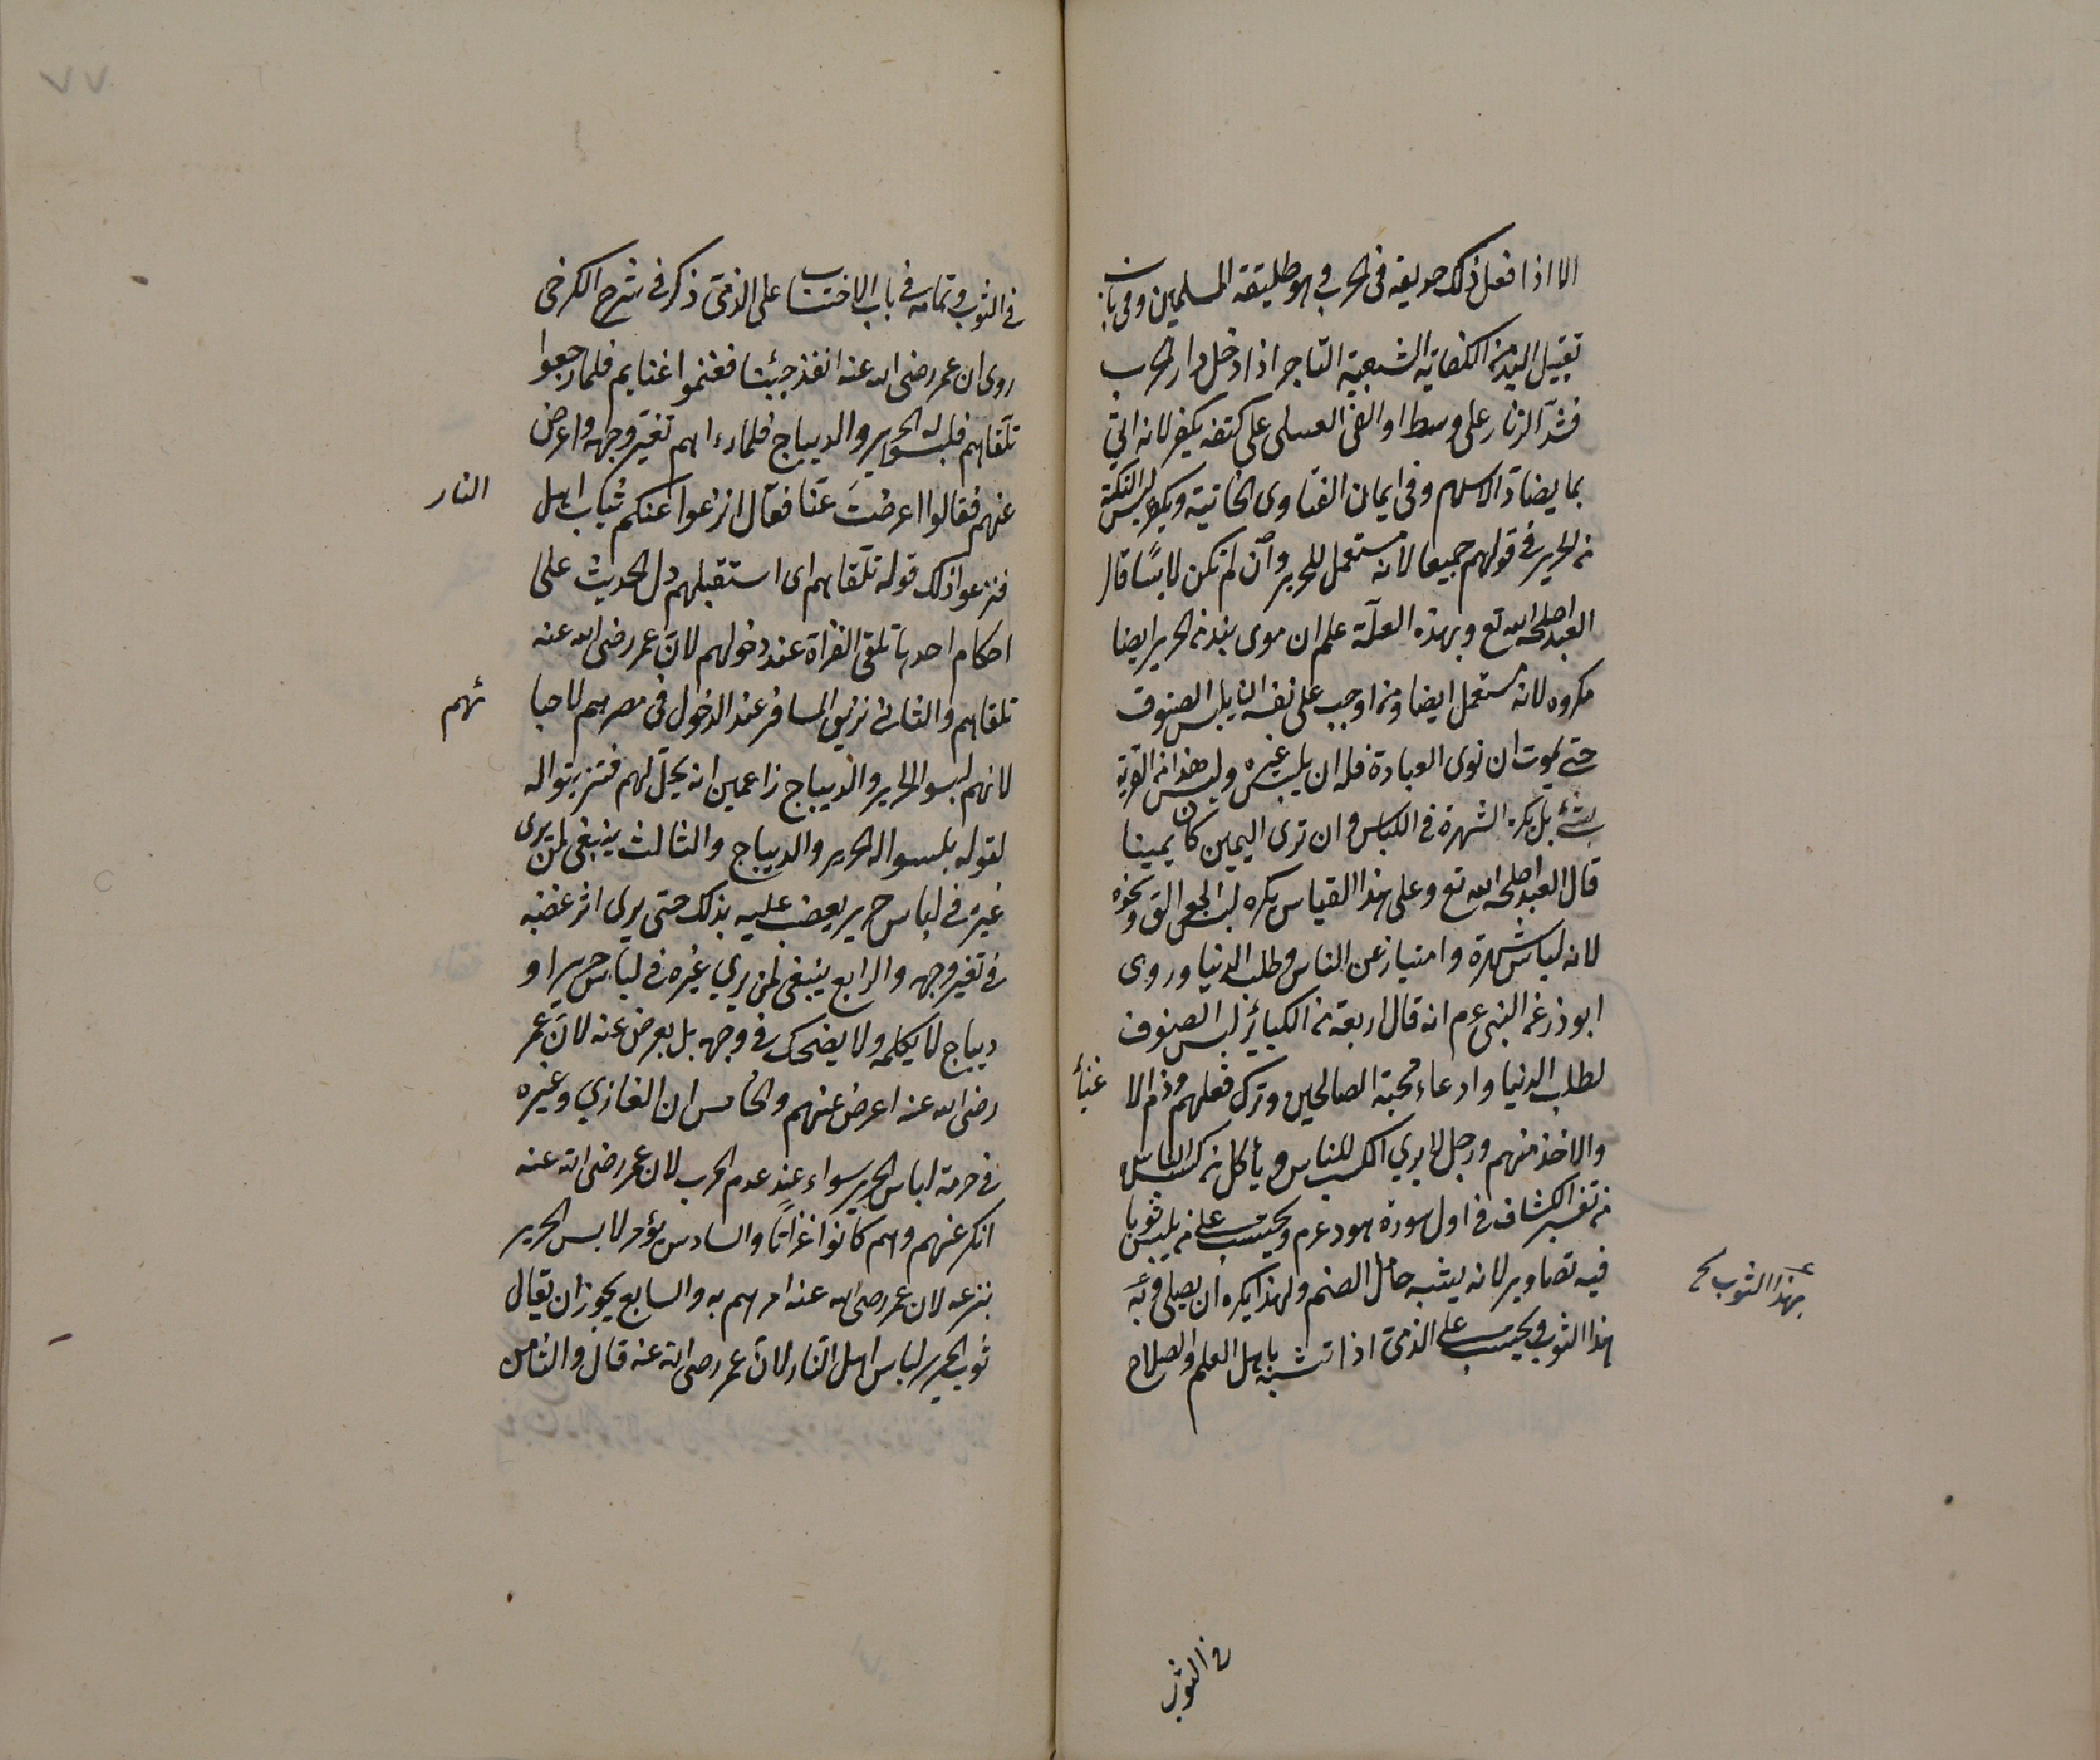 الا اذا فعل ذلك خديعة فى الحرب وهو طليعة المسلمين وفى باب
تقبيل اليد من الكفاية الشعبية التاجر اذا دخل دار الحرب
فشد الزنار على وسطه او القى العسلى على كتفه يكفر لانه اتى
بما يضاد الاسلام وفى ايمان الفتاوى الخانية ويكره لبس التكة
من الحرير فى قولهم جميعا لانه مستعمل للحرير وان لم تكن لابسًا قال
العبد اصلحه الله تع وبهذه العلة علم ان سوى بند من الحرير ايضا
مكروه لانه مستعمل ايضا ومن اوجب على نفسه ان يلبس الصوف
حتى يموت ان نوى العبادة فله ان يلبس غيره وليس هذا من القربة
بشئ بل يكره الشهرة فى اللباس وان نوى اليمين كان يمينا
قال العبد اصلحه الله تع وعلى هذا القياس يكره لبس الجوالق ونحوه
لانه لباس شهرة وامتياز عن الناس وطلب الدنيا وروى
ابو ذر عن النبى عم انه قال اربعة من الكبائر لبس الصوف
لطلب الدنيا وادعاء محبة الصالحين وترك فعلهم وذم الا
غنيأ
والاخذ منهم ورجل لا يرى الكسب للناس ويأكل من كسب الناس
من تفسير الكشاف فى اول سورة هود عم ويحتسب على من يلبس ثوبا
فيه تصاوير لانه يشبه حامل الصنم ولهذا يكره ان يصلى وعليه
بهذا الثوب
هذا الثوب ويحتسب على الذمى اذا تشبه باهل العلم والصلاح
فى الثوب
٧٧
فى الثوب وتمامه فى باب الاحتساب على الذمى ذكر فى شرح الكرخى
روى ان عمر رضى الله عنه انفذ جيشا فغنموا غنايم فلما رجعوا
تلقاهم فلبسوا الحرير والديباج فلما رءاهم تغير وجهه واعرض
عنهم فقالوا اعرضتَ عنّا فقال انزعوا عنكم ثياب اهل
النار
فنزعوا ذلك قوله تلقاهم اى استقبلهم دل الحديث على
احكام احدها تلقى الغزاة عند دخولهم لان عمر رضى الله عنه
تلقاهم والثانى تزين المسافر عند الدخول فى مصرهم لاحبا
ئهم
لانهم لبسوا الحرير والديباج زاعمين انه يحلّ لهم فتزينوا له
لقوله بلبسوا له الحرير والديباج والثالث ينبغى لمن يرى
غيره فى لباس حرير يغضب عليه بذلك حتى يرى اثر غضبه
فى تغير وجهه والرابع ينبغى لمن يرى غيره فى لباس حرير او
ديباج لا يكلمه ولا يضحك فى وجهه بل يعرض عنه لان عمر
رضى الله عنه اعرض عنهم والخامس ان الغازي وغيره
فى حرمة لباس الحرير سواء عند عدم الحرب لان عمر رضى الله عنه
انكر عنهم وهم كانوا غزاتًا والسادس يؤمر لابس الحرير
بنزعه لان عمر رضى الله عنه امرهم به والسابع يجوز ان يقال
ثوب الحرير لباس اهل النار لان عمر رضى الله عنه قال والثامن